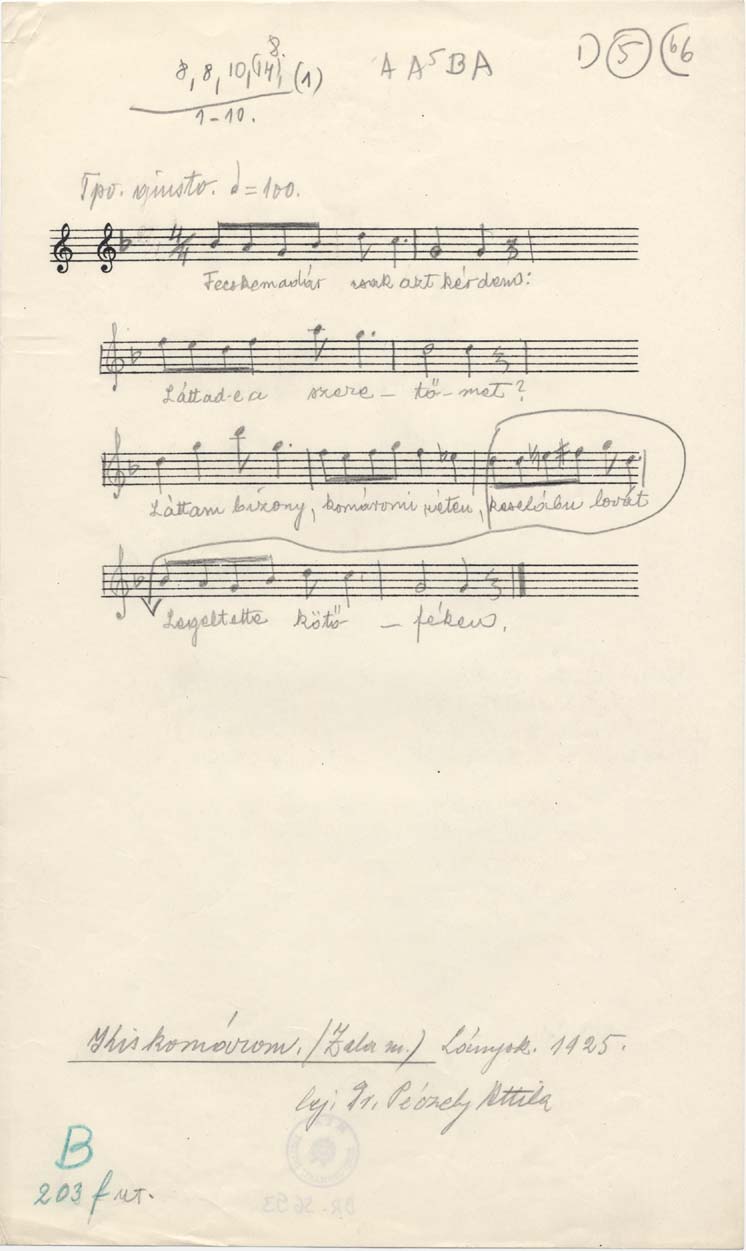 8, 8, 10, (14), 8. (1)
1-10.
A A⁵ B A
1) 5 (b6
Tpo. giusto. = 100.
4/4
Fecskemadár csak azt kérdem:
Láttad-e a szere - tő - met?
Láttam bizony, komáromi réten, keselábu lovát
Legeltette kötő - féken.
Kiskomárom. (Zala m.) Lányok. 1925.
lej: Dr. Péczely Attila
B
203 f